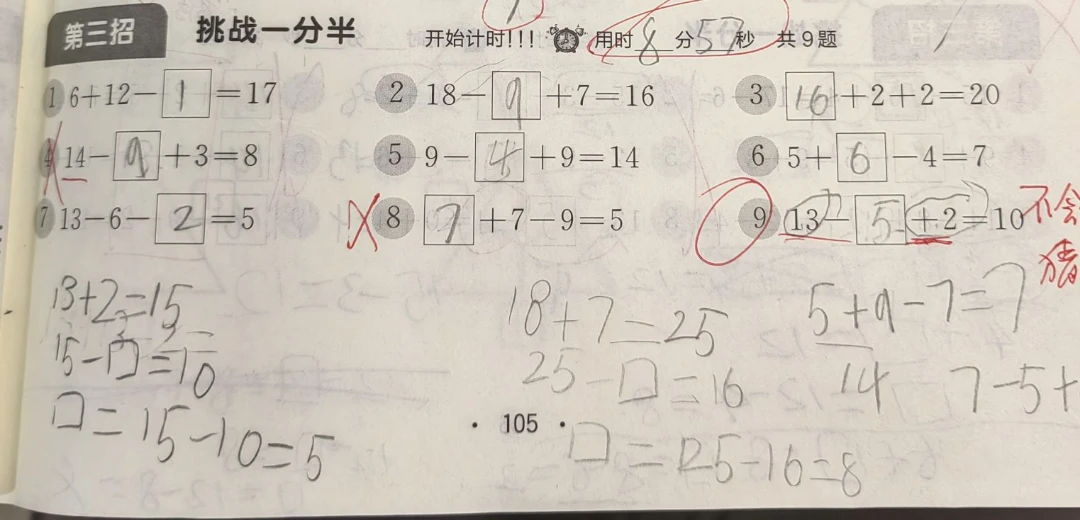 第三招 挑战一分半 开始计时!!! 用时 8 分 57 秒 共9题
1 6+12-1=17 2 18-9+7=16 3 16+2+2=20
4 14-9+3=8 5 9-4+9=14 6 5+6-4=7
7 13-6-2=5 8 7+7-9=5 9 13-5+2=10 不会
猜
13+2=15
15-□=10
□=15-10=5
18+7=25
25-□=16
□=25-16=8
5+9-7=7
14 7-5+
· 105 ·